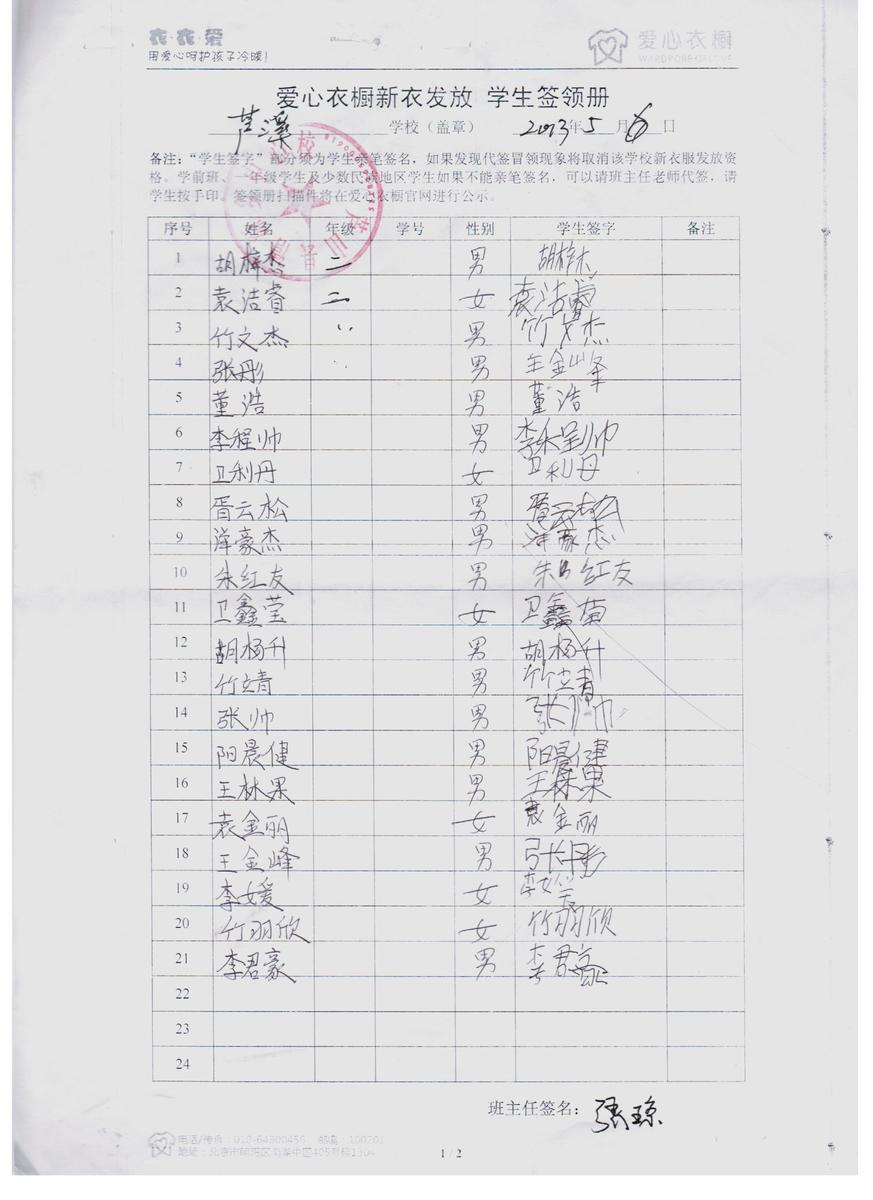 衣·衣·爱
用爱心呵护孩子冷暖!
爱心衣橱
WARDROBE OF LOVE
爱心衣橱新衣发放 学生签领册
芦溪 学校（盖章） 2013年5月6日
备注：“学生签字”部分须为学生亲笔签名，如果发现代签冒领现象将取消该学校新衣服发放资
格。学前班、一年级学生及少数民族地区学生如果不能亲笔签名，可以请班主任老师代签，请
学生按手印。签领册扫描件将在爱心衣橱官网进行公示。
序号 姓名 年级 学号 性别 学生签字 备注
1 胡梓杰 二 男 胡梓杰
2 袁洁睿 二 女 袁洁睿
3 竹文杰 男 竹文杰
4 张彤 男 王金峰
5 董浩 男 董浩
6 李程帅 男 李程帅
7 卫利丹 女 卫利丹
8 胥云松 男 胥云松
9 豪杰 男 豪杰
10 朱红友 男 朱红友
11 卫鑫莹 女 卫鑫
12 胡杨升 男 胡杨升
13 竹靖 男 竹靖
14 张帅 男 张帅
15 阳晨健 男 阳晨健
16 王林果 男 王林果
17 袁金丽 女 袁金丽
18 王金峰 男 张彤
19 李媛 女 李媛
20 竹羽欣 女 竹羽欣
21 李君豪 男 李君豪
22
23
24
班主任签名： 张琼
电话/传真：010-64300456 邮编：100201
1 / 2